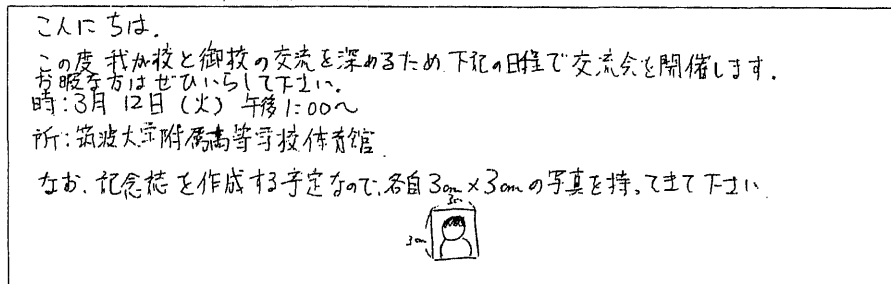 こんにちは.
この度 我が校と御校の交流を深めるため 下記の日程で交流会を開催します.
お暇な方はぜひいらして下さい.
時:3月12日(火) 午後1:00〜
所:筑波大学附属高等学校体育館
なお、記念誌を作成する予定なので、各自3cm×3cmの写真を持ってきて下さい
3cm
3cm